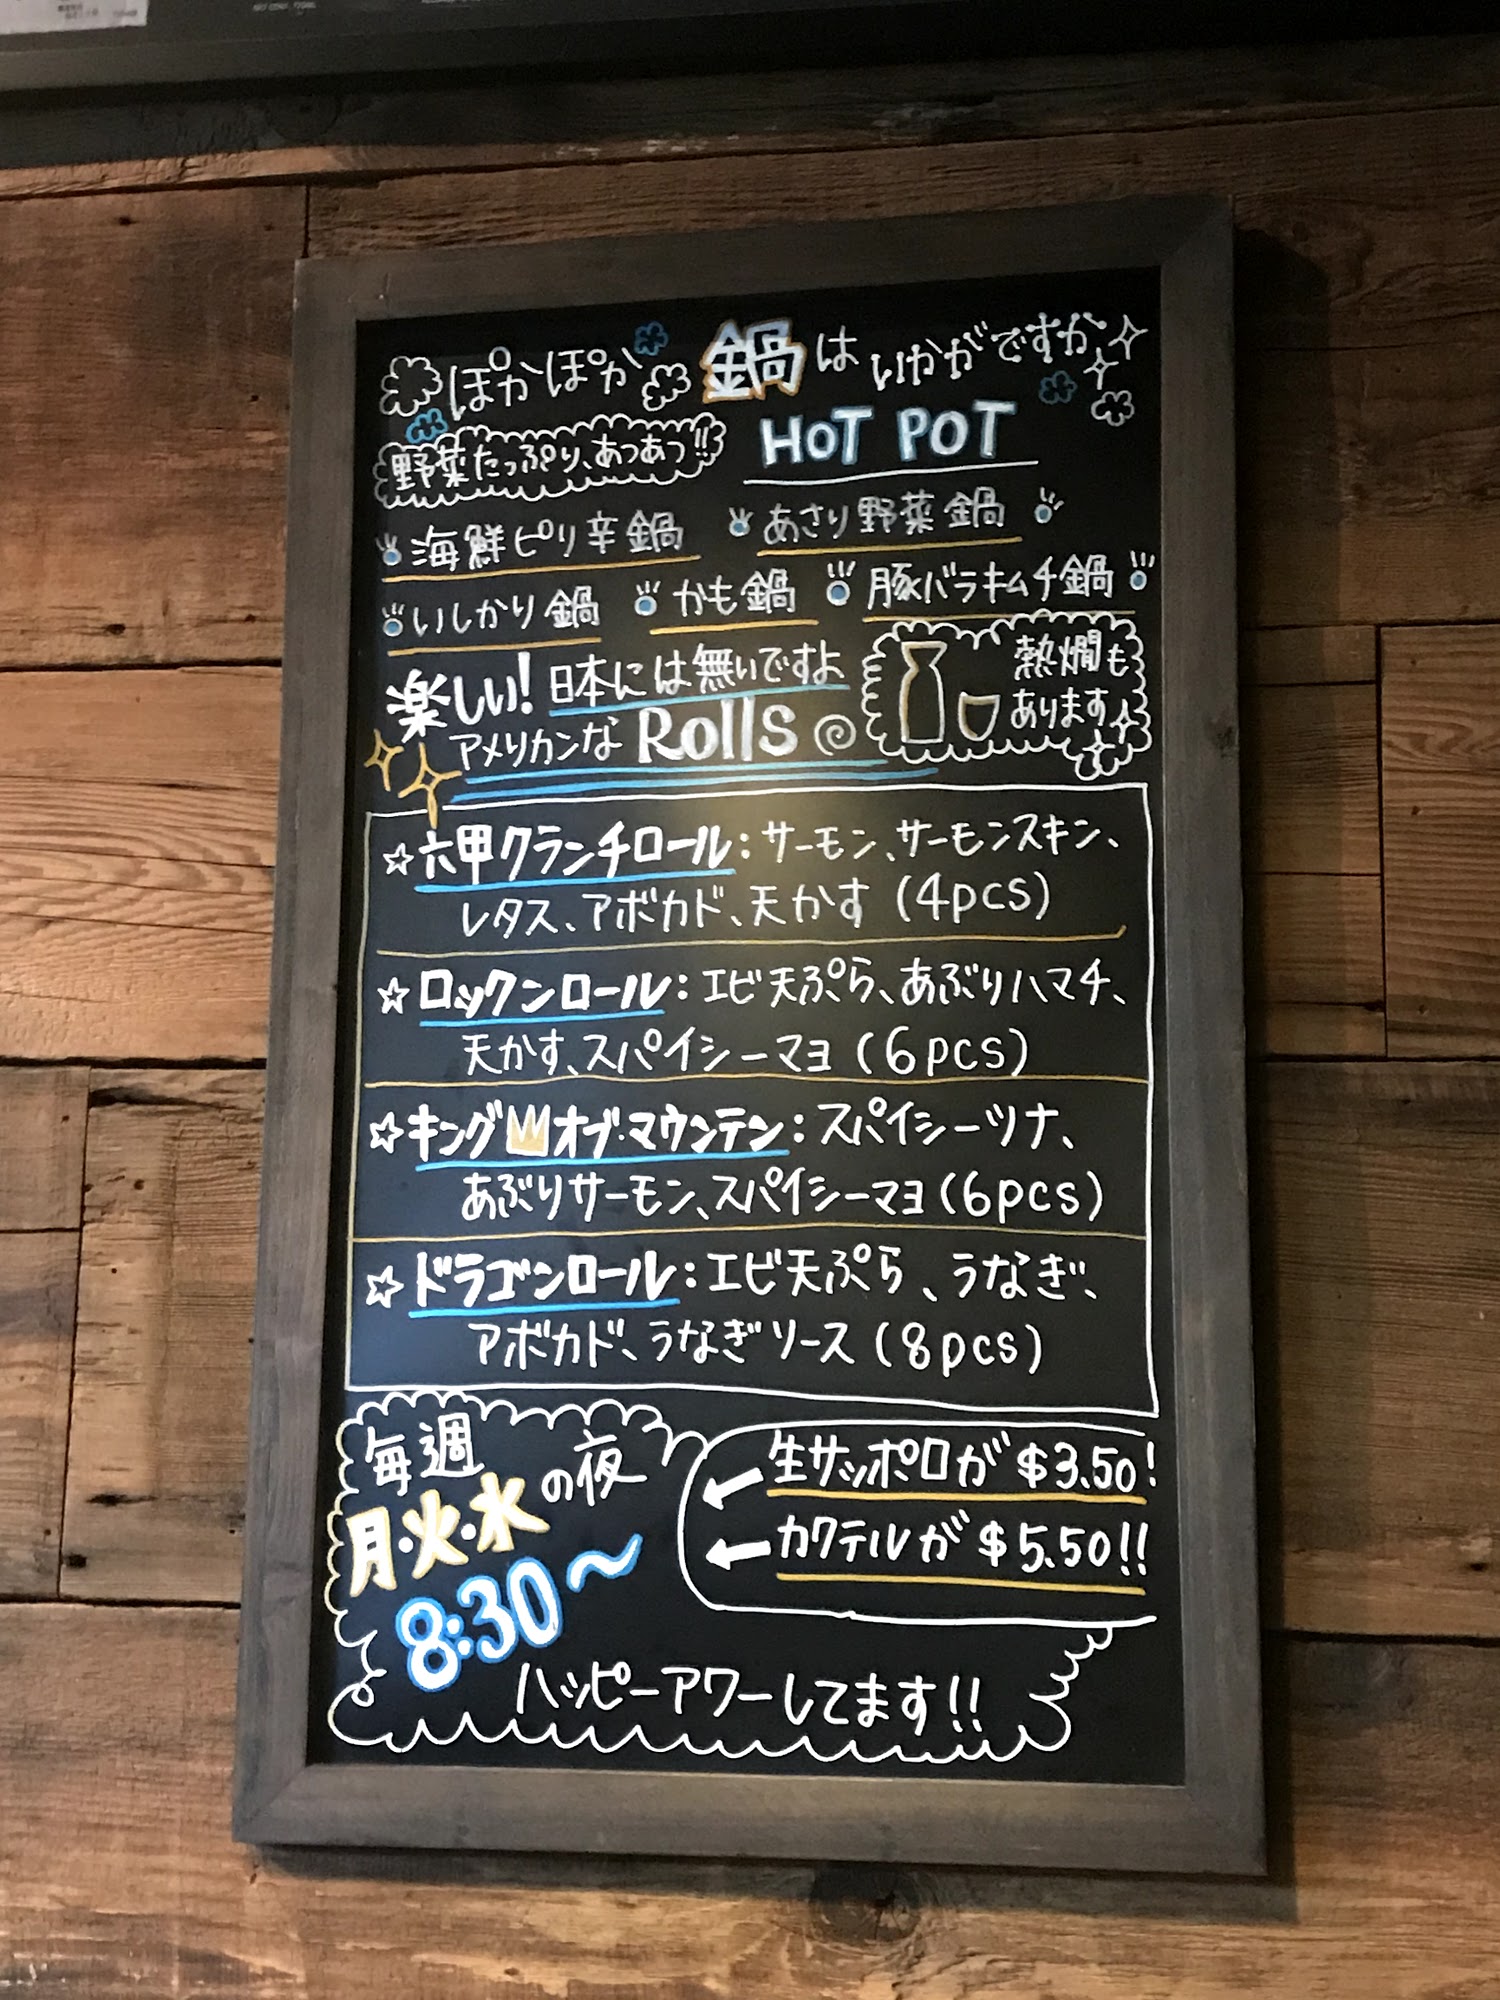 ぽかぽか 鍋は いかがですか
野菜たっぷり、あつあつ!! HOT POT
海鮮ピリ辛鍋 あさり野菜鍋
いしかり鍋 かも鍋 豚バラキムチ鍋
楽しい! 日本には無いですよ
アメリカンな Rolls
熱燗も
あります
☆六甲クランチロール：サーモン、サーモンスキン、
レタス、アボカド、天かす (4pcs)
☆ロックンロール：エビ天ぷら、あぶりハマチ、
天かす、スパイシーマヨ (6pcs)
☆キング オブ・マウンテン：スパイシーツナ、
あぶりサーモン、スパイシーマヨ (6pcs)
☆ドラゴンロール：エビ天ぷら、うなぎ、
アボカド、うなぎソース (8pcs)
毎週
月・火・水の夜
8:30〜
← 生サッポロが $3.50!
← カクテルが $5.50!!
ハッピーアワーしてます!!